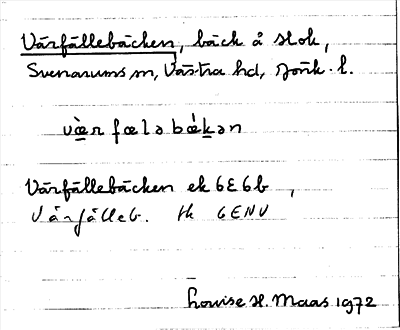 Vårfållebäcken, bäck å slok,
Svenarums sn, Västra hd, Jönk. l.
vàr fælə bǽkən
Vårfållebäcken ek 6E6b,
Vårfålleb. tk 6ENV
Louise H. Maas 1972